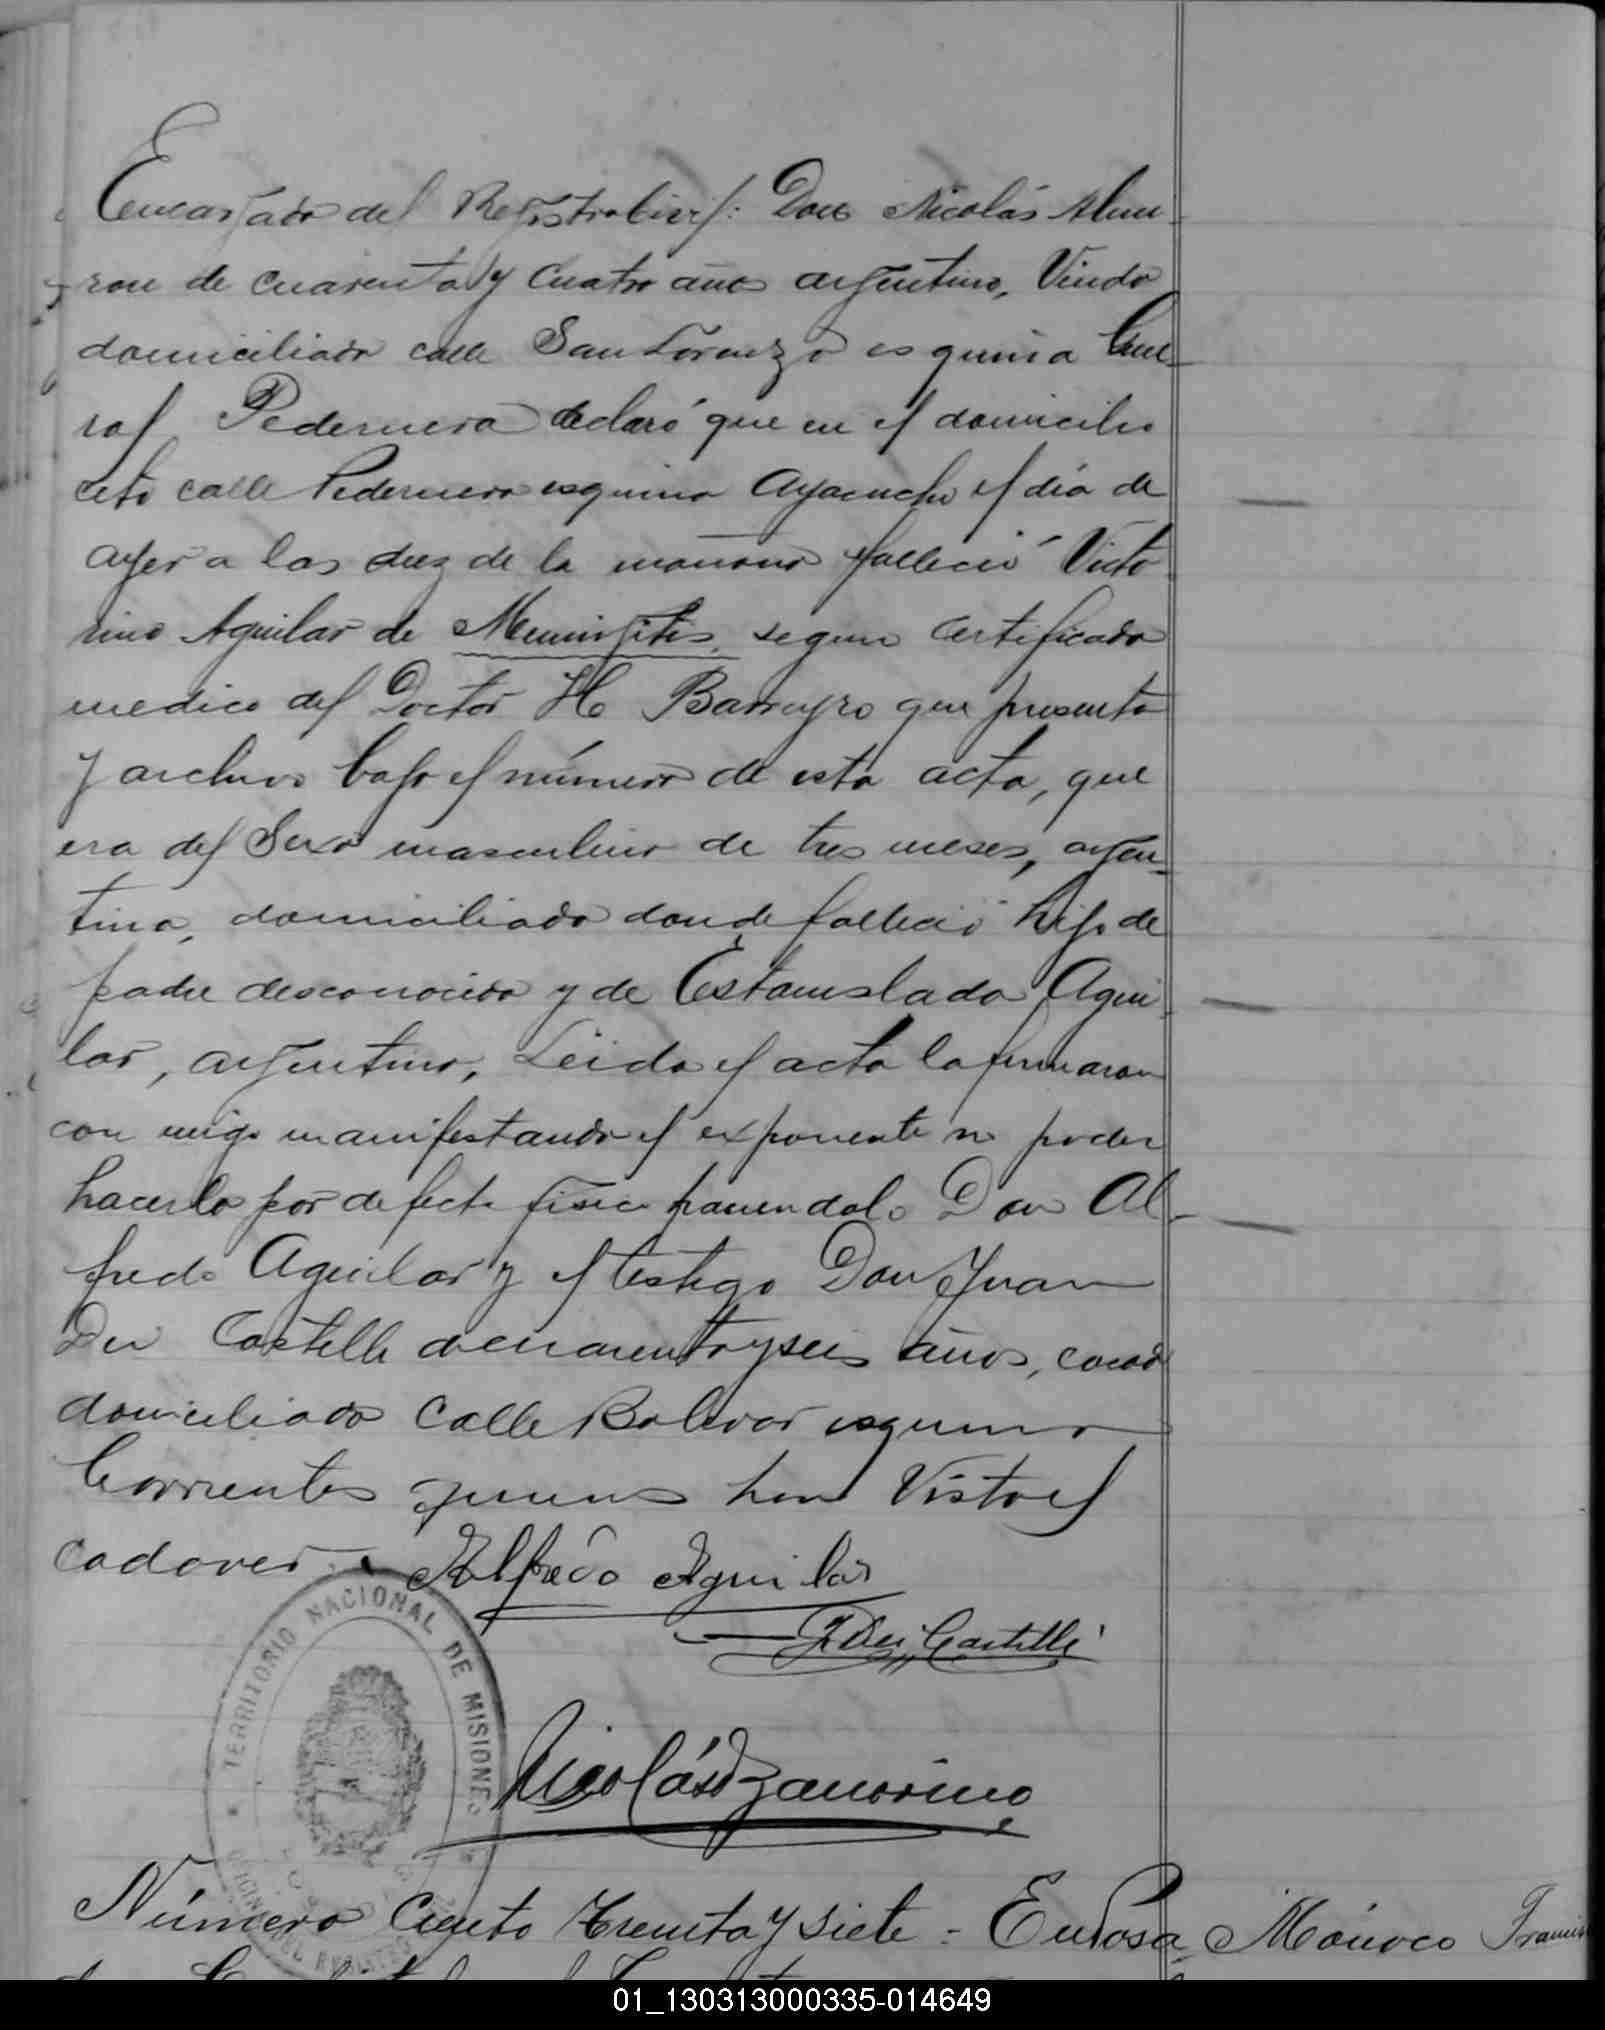 Encargado del Registro Civil: Don Nicolás Alum-
ron de cuarenta y cuatro años argentino, Viudo
domiciliado calle San Lorenzo esquina Gene-
ral Pedernera declaró que en el domicilio
calle Pedernera esquina Ayacucho el día de
ayer a las diez de la mañana falleció Victo
rino Aguilar de Meningitis, segun certificado
medico del Doctor H Barreyro que presenta
y archivo bajo el número de esta acta, que
era del Sexo masculino de tres meses, argen-
tino, domiciliado donde falleció hijo de
padre desconocido y de Estanislada Agui-
lar, argentina, Leida el acta la firmaron
con migo manifestando el exponente no poder
hacerlo por defecto fisico haciendolo Don Al-
fredo Aguilar y el testigo Don Juan
Dei Castelli de cuarenta y seis años, casado
domiciliado Calle Bolivar esquina
Corrientes quienes han Visto el
cadaver.
Alfredo Aguilar
J Dei Castelli
TERRITORIO NACIONAL DE MISIONES
Nicolás Zamorino
Número Ciento Treinta y siete = En Posa
Mónaco
01_130313000335-014649